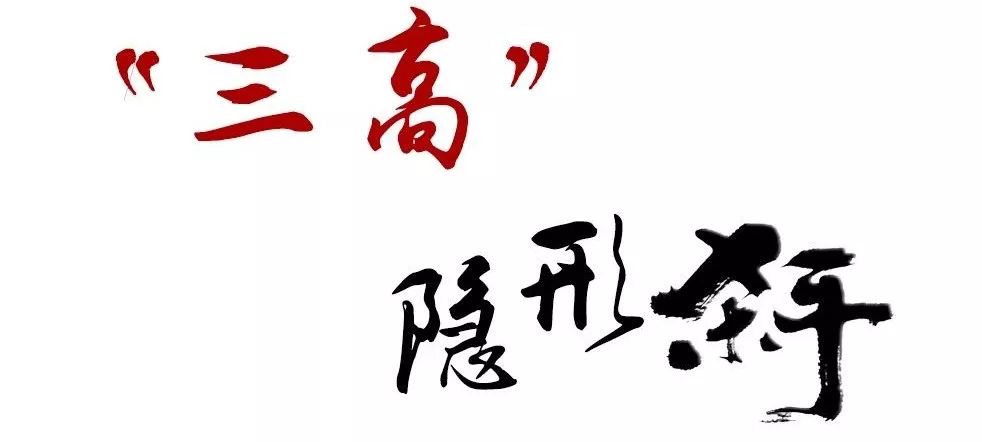 “三高”
隐形杀手